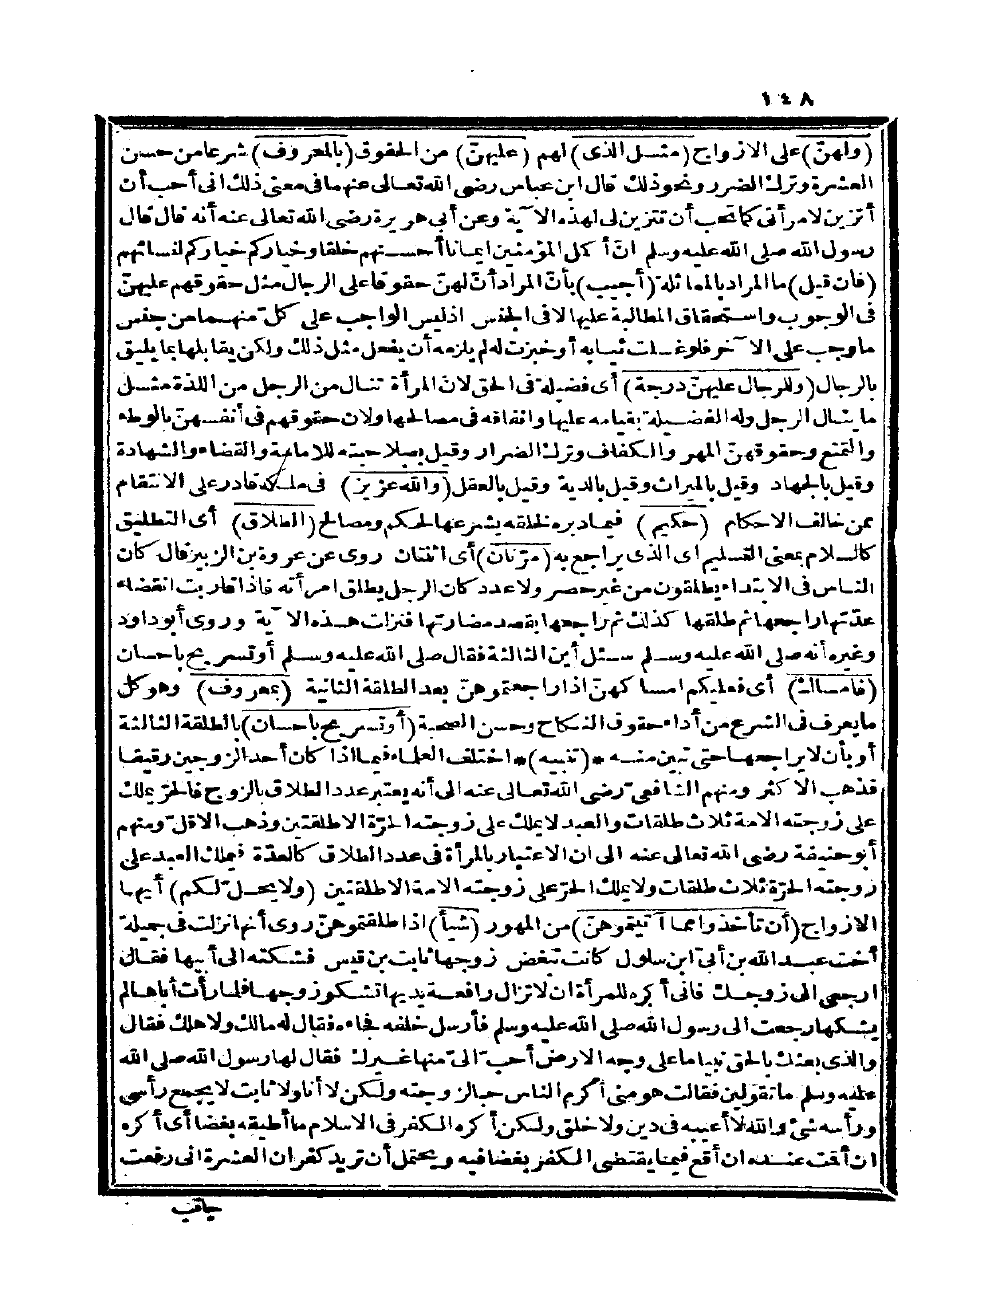 ١٤٨
(ولهنّ) على الازواج (مثل الذى) لهم (عليهنّ) من الحقوق (بالمعروف) شرعا من حسن
العشرة وترك الضرر ونحو ذلك قال ابن عباس رضى الله تعالى عنهما فى معنى ذلك انى أحب أن
أتزين لامرأتى كما تحب أن تتزين لى لهذه الآية وعن أبى هريرة رضى الله تعالى عنه أنه قال قال
رسول الله صلى الله عليه وسلم انّ أكمل المؤمنين ايمانا أحسنهم خلقا وخياركم خياركم لنسائهم
(فان قيل) ما المراد بالمماثلة (أجيب) بأنّ المراد أنّ لهنّ حقوقا على الرجال مثل حقوقهم عليهنّ
فى الوجوب واستحقاق المطالبة عليها لا فى الجنس اذ ليس الواجب على كلّ منهما من جنس
ما وجب على الآخر فلو غسلت ثيابه أو خبزت له لم يلزمه أن يفعل مثل ذلك ولكن يقابلها بما يليق
بالرجال (وللرجال عليهنّ درجة) أى فضيلة فى الحق لان المرأة تنال من الرجل من اللذة مثل
ما ينال الرجل وله الفضيلة بقيامه عليها وانفاقه فى مصالحها ولان حقوقهم فى أنفسهنّ بالوطء
والتمتع وحقوقهنّ المهر والكفاف وترك الضرار وقيل بصلاحيته للامامة والقضاء والشهادة
وقيل بالجهاد وقيل بالميراث وقيل بالدية وقيل بالعقل (والله عزيز) فى ملكه قادر على الانتقام
ممن خالف الاحكام (حكيم) فيما دبره لخلقه يشرعها لحكم ومصالح (الطلاق) أى التطليق
كالسلام بمعنى التسليم اى الذى يراجع به (مرّتان) أى اثنتان روى عن عروة بن الزبير قال كان
الناس فى الابتداء يطلقون من غير حصر ولا عدد كان الرجل يطلق امرأته فاذا قاربت انقضاء
عدّتها راجعها ثم طلقها كذلك ثم راجعها بقصد مضارتها فنزلت هذه الآية وروى أبو داود
وغيره أنه صلى الله عليه وسلم سئل أين الثالثة فقال صلى الله عليه وسلم أو تسريح باحسان
(فامساك) أى فعليكم امساكهنّ اذا راجعتموهنّ بعد الطلقة الثانية (بمعروف) وهو كل
ما يعرف فى الشرع من أداء حقوق النكاح وحسن الصحبة (أو تسريح باحسان) بالطلقة الثالثة
أو بأن لا يراجعها حتى تبين منه *(تنبيه)* اختلف العلماء فيما اذا كان أحد الزوجين رقيقا
فذهب الاكثر ومنهم الشافعىّ رضى الله تعالى عنه الى أنه يعتبر عدد الطلاق بالزوج فالحرّ يملك
على زوجته الامة ثلاث طلقات والعبد لا يملك على زوجته الحرّة الا طلقتين وذهب الاقلّ ومنهم
أبو حنيفة رضى الله تعالى عنه الى ان الاعتبار بالمرأة فى عدد الطلاق كالعدّة فيملك العبد على
زوجته الحرّة ثلاث طلقات ولا يملك الحرّ على زوجته الامة الا طلقتين (ولا يحلّ لكم) أيها
الازواج (أن تأخذوا مما آتيتموهنّ) من المهور (شيأ) اذا طلقتموهنّ روى أنها نزلت فى جميلة
أخت عبد الله بن أبىّ ابن سلول كانت تبغض زوجها ثابت بن قيس فشكته الى أبيها فقال
ارجعى الى زوجك فانى أكره للمرأة ان لا تزال رافعة يديها تشكو زوجها فلما رأت أباها لم
يشكها رجعت الى رسول الله صلى الله عليه وسلم فأرسل خلفه فجاءه فقال له مالك ولاهلك فقال
والذى بعثك بالحق نبيا ما على وجه الارض أحبّ الىّ منها غيرك فقال لها رسول الله صلى الله
عليه وسلم ما تقولين فقالت هو منى أكرم الناس حبا لزوجته ولكن لا أنا ولا ثابت لا يجمع رأسى
ورأسه شئ والله لا أعيبه فى دين ولا خلق ولكن أكره الكفر فى الاسلام ما أطيقه بغضا أى أكره
ان أقت عنده ان أقع فيما يقتضى الكفر بغضا فيه ويحتمل أن تريد كفران العشرة انى رفعت
جانب